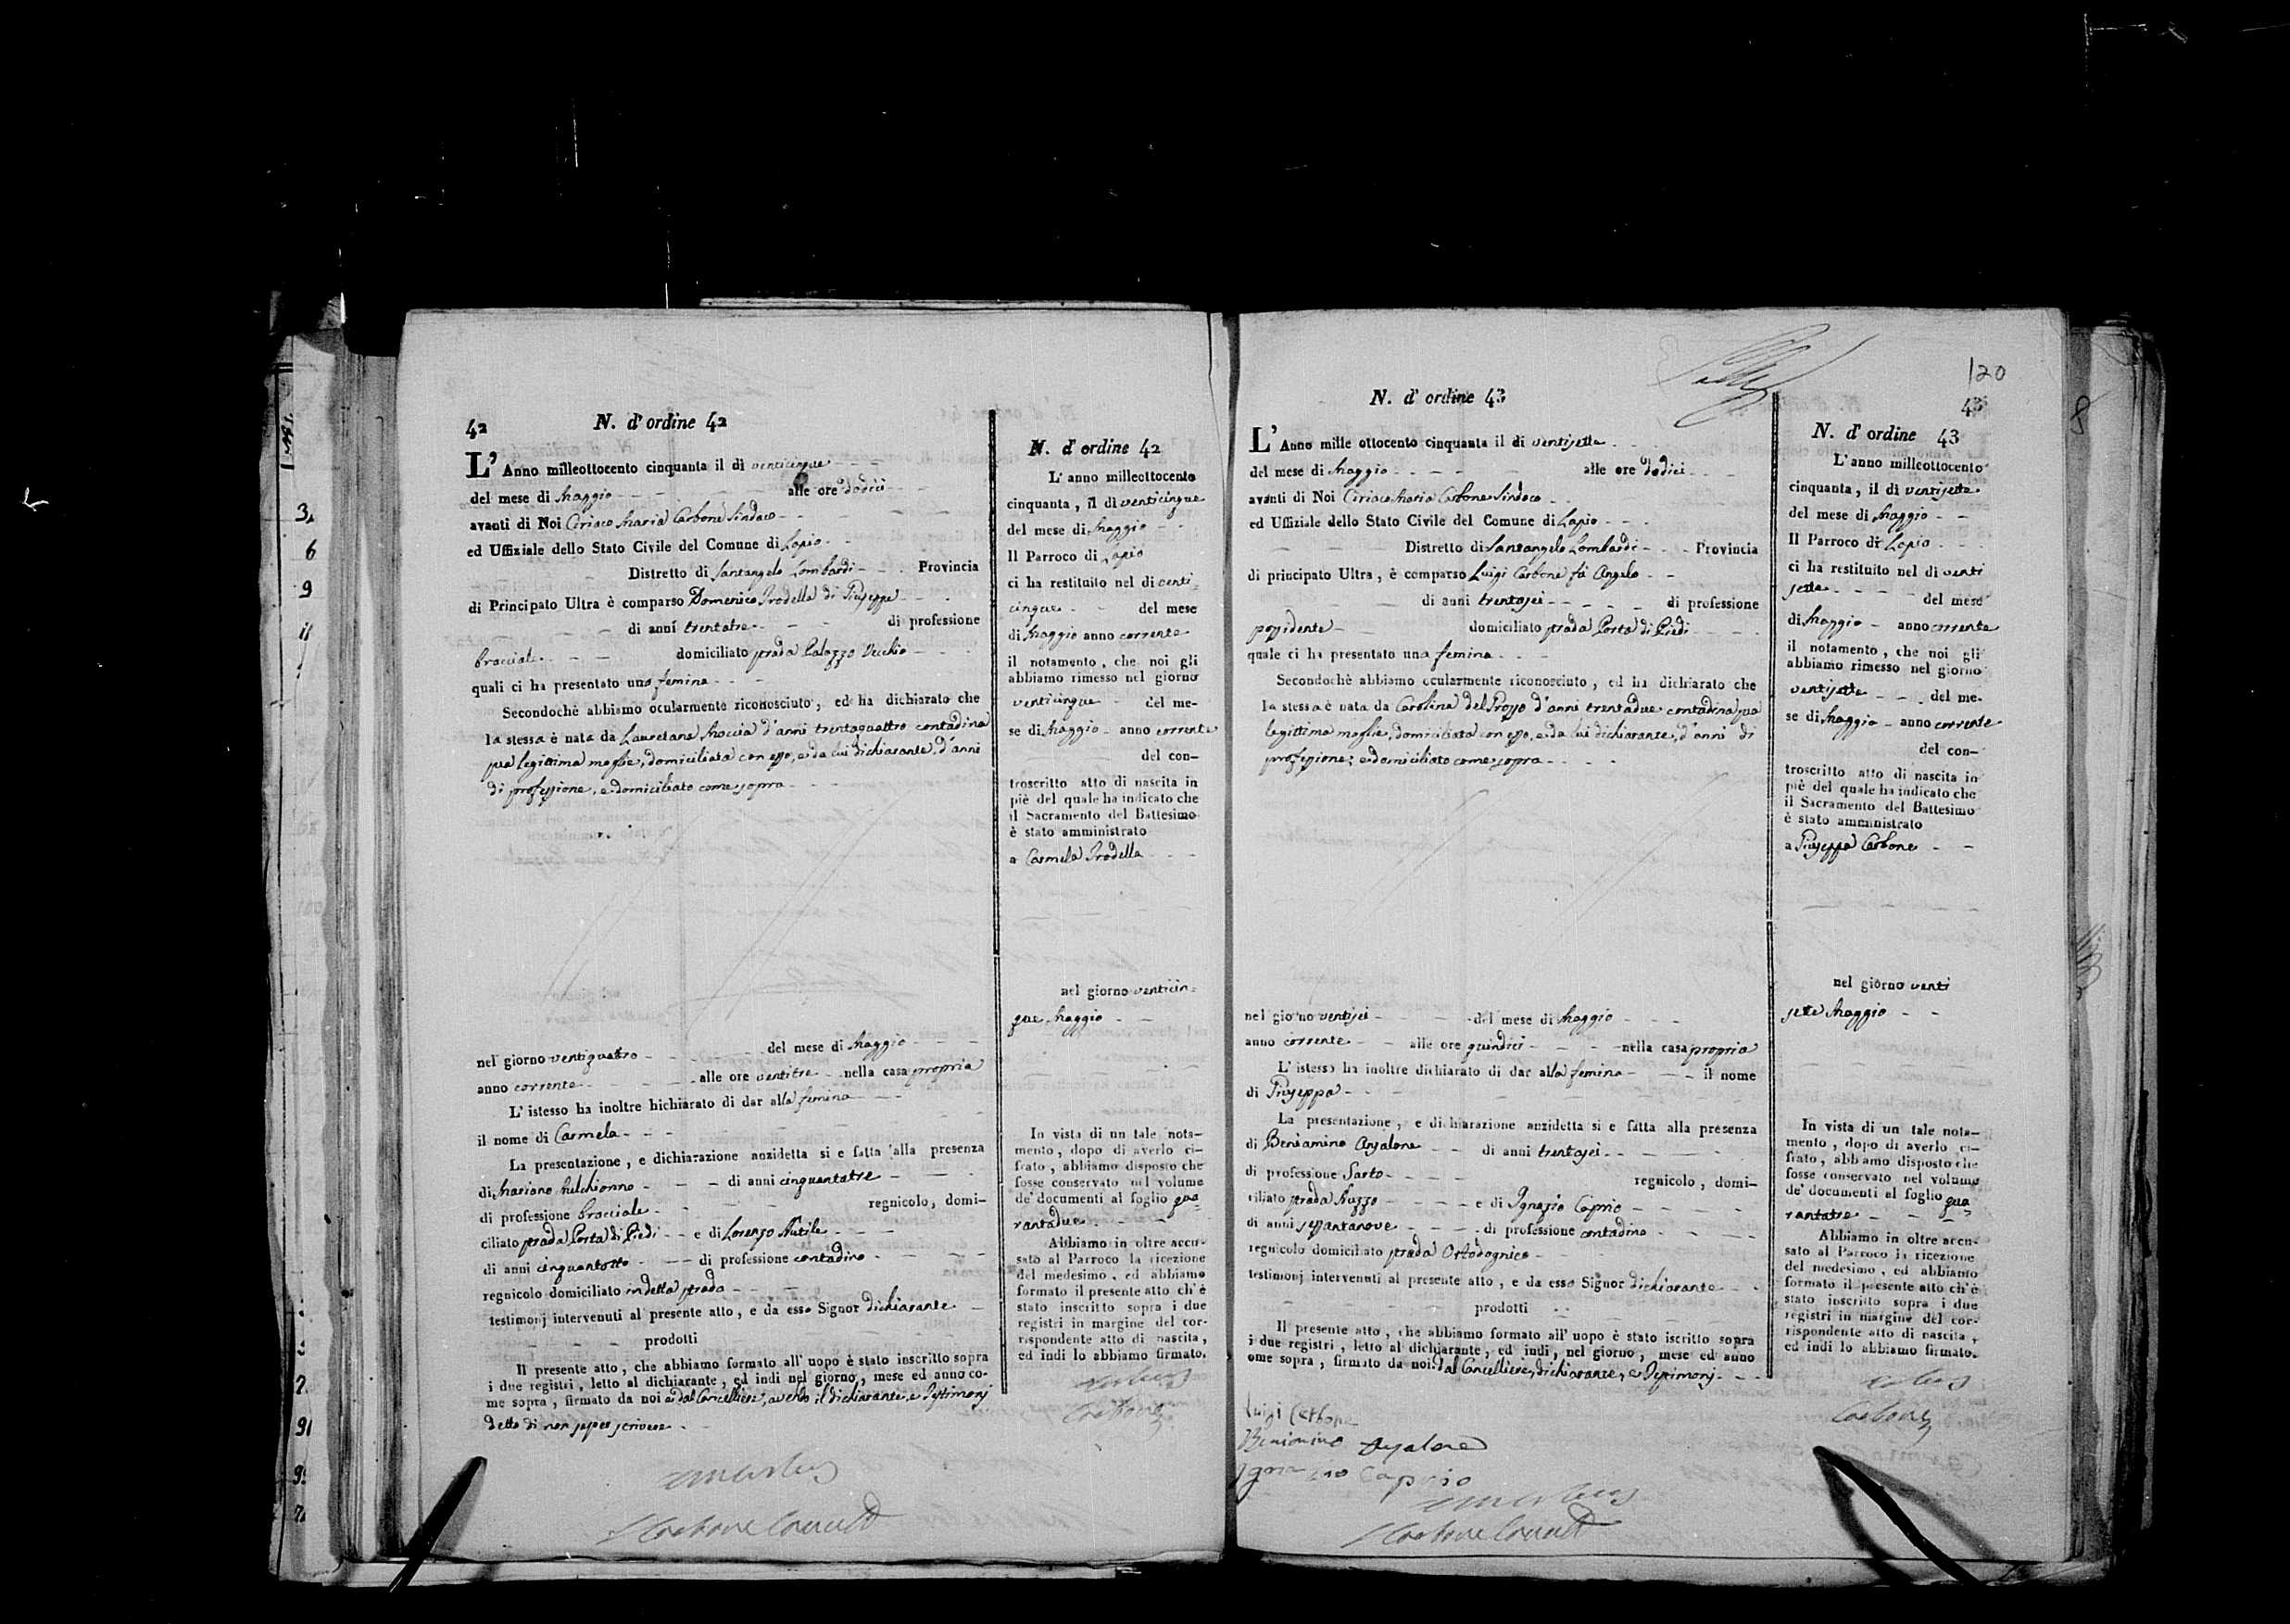 120
42
N. d' ordine 42
L' Anno milleottocento cinquanta il dì venticinque
del mese di Maggio alle ore dodici
avanti di Noi Ciriaco Maria Carbone Sindaco
ed Uffiziale dello Stato Civile del Comune di Lapio
Distretto di Santangelo Lombardi Provincia
di Principato Ultra è comparso Domenico Trodella di Giuseppe
di anni trentatre di professione
bracciale domiciliato strada Palazzo Vecchio
quali ci ha presentato una femina
Secondochè abbiamo ocularmente riconosciuto, ed ha dichiarato che
la stessa è nata da Lauretana Moccia d'anni trentaquattro contadina
sua legittima moglie, domiciliata con esso, e da lui dichiarante, d'anni
di professione, e domiciliato come sopra
nel giorno ventiquattro del mese di Maggio
anno corrente alle ore ventitre nella casa propria
L' istesso ha inoltre hichiarato di dar alla femina
il nome di Carmela
La presentazione, e dichiarazione anzidetta si e fatta alla presenza
di Mariano di anni cinquantatre
di professione bracciale regnicolo, domi-
ciliato strada Porta di Piedi e di Lorenzo
di anni cinquantotto di professione contadino
regnicolo domiciliato in detta strada
testimonj intervenuti al presente atto, e da esso Signor dichiarante
prodotti
Il presente atto, che abbiamo formato all' uopo è stato inscritto sopra
i due registri, letto al dichiarante, ed indi nel giorno, mese ed anno co-
me sopra, firmato da noi e dal Cancelliere, avendo il dichiarante, e Testimonj
detto di non saper scrivere
N. d' ordine 42
L' anno milleottocento
cinquanta, il dì venticinque
del mese di Maggio
Il Parroco di Lapio
ci ha restituito nel di venti
cinque del mese
di Maggio anno corrente
il notamento, che noi gli
abbiamo rimesso nel giorno
venticinque del me-
se di Maggio anno corrente
del con-
troscritto atto di nascita in
piè del quale ha indicato che
il Sacramento del Battesimo
è stato amministrato
a Carmela Trodella
nel giorno venticin-
que Maggio
In vista di un tale nota-
mento, dopo di averlo ci-
frato, abbiamo disposto che
fosse conservato nel volume
de' documenti al foglio qua-
rantadue
Abbiamo in oltre accu-
sato al Parroco la ricezione
del medesimo, ed abbiamo
formato il presente atto ch' è
stato inscritto sopra i due
registri in margine del cor-
rispondente atto di nascita,
ed indi lo abbiamo firmato.
Carbone
N. d' ordine 43
L' Anno mille ottocento cinquanta il di ventisette
del mese di Maggio alle ore dodici
avanti di Noi Ciriaco Maria Carbone Sindaco
ed Uffiziale dello Stato Civile del Comune di Lapio
Distretto di Santangelo Lombardi Provincia
di principato Ultra, è comparso Luigi Carbone fù Angelo
di anni trentasei di professione
possidente domiciliato strada Porta di Piedi
quale ci ha presentato una femina
Secondochè abbiamo ocularmente riconosciuto, ed ha dichiarato che
la stessa è nata da Carolina del Grosso d'anni trentadue contadina sua
legittima moglie, domiciliata con esso, e da lui dichiarante, d'anni di
professione, e domiciliato come sopra
nel giorno ventisei del mese di Maggio
anno corrente alle ore quindici nella casa propria
L' istesso ha inoltre dichiarato di dar alla femina il nome
di Giuseppa
La presentazione, e dichiarazione anzidetta si e fatta alla presenza
di Beniamino Anzalone di anni trentasei
di professione Sarto regnicolo, domi-
ciliato strada e di Ignazio Caprio
di anni sessantanove di professione contadino
regnicolo domiciliato strada
testimonj intervenuti al presente atto, e da esso Signor dichiarante
prodotti
Il presente atto, che abbiamo formato all' uopo è stato iscritto sopra
i due registri, letto al dichiarante, ed indi, nel giorno, mese ed anno
ome sopra, firmato da noi dal Cancelliere, dichiarante, e Testimonj
Luigi Carbone
Beniamino Anzalone
Ignazio Caprio
43
N. d' ordine 43
L' anno milleottocento
cinquanta, il di ventisette
del mese di Maggio
Il Parroco di Lapio
ci ha restituito nel di venti
sette del mese
di Maggio anno corrente
il notamento, che noi gli
abbiamo rimesso nel giorno
ventisette del me-
se di Maggio anno corrente
del con-
troscritto atto di nascita in
piè del quale ha indicato che
il Sacramento del Battesimo
è stato amministrato
a Giuseppa Carbone
nel giorno venti
sette Maggio
In vista di un tale nota-
mento, dopo di averlo ci-
frato, abbiamo disposto che
fosse conservato nel volume
de' documenti al foglio qua-
rantatre
Abbiamo in oltre accu-
sato al Parroco la ricezione
del medesimo, ed abbiamo
formato il presente atto ch' è
stato inscritto sopra i due
registri in margine del cor-
rispondente atto di nascita,
ed indi lo abbiamo firmato.
Carbone